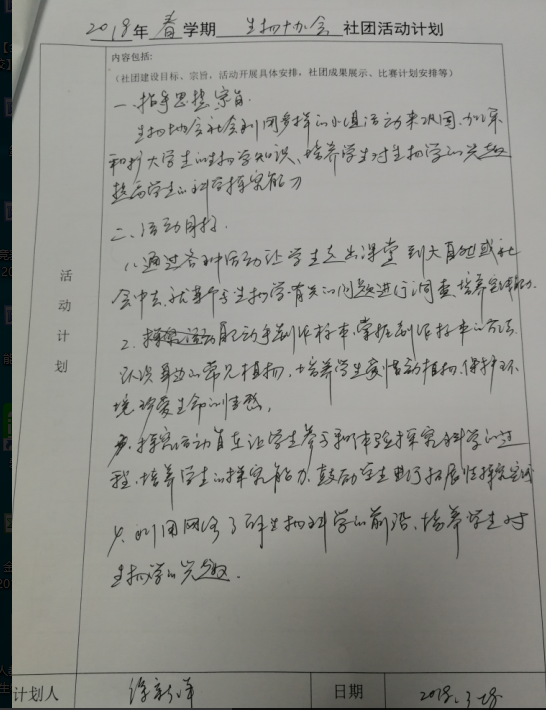 2018年 春 学期 生物协会 社团活动计划
内容包括:
(社团建设目标、宗旨,活动开展具体安排,社团成果展示、比赛计划安排等)
一.指导思想宗旨.
生物协会社会利用多样的小组活动来巩固.加深
和扩大学生的生物学知识、培养学生对生物学的兴趣
提高学生的科学探究能力
二、活动目标.
1、通过各种活动让学生走出课堂 到大自然或社
会中去,就某个与生物学有关的问题进行调查,培养实践能力.
2. 自己动手制作标本,掌握制作标本的方法.
认识身边的常见植物,培养学生爱惜动植物,保护环
境珍爱生命的情感,
3.探究活动旨在让学生参与和体验探究科学的过
程,培养学生的探究能力,鼓励学生进行拓展性探究实践
4.利用网络了解生物科学的前沿、培养学生对
生物学的兴趣.
活动计划
计划人 徐新峰 日期 2018.3